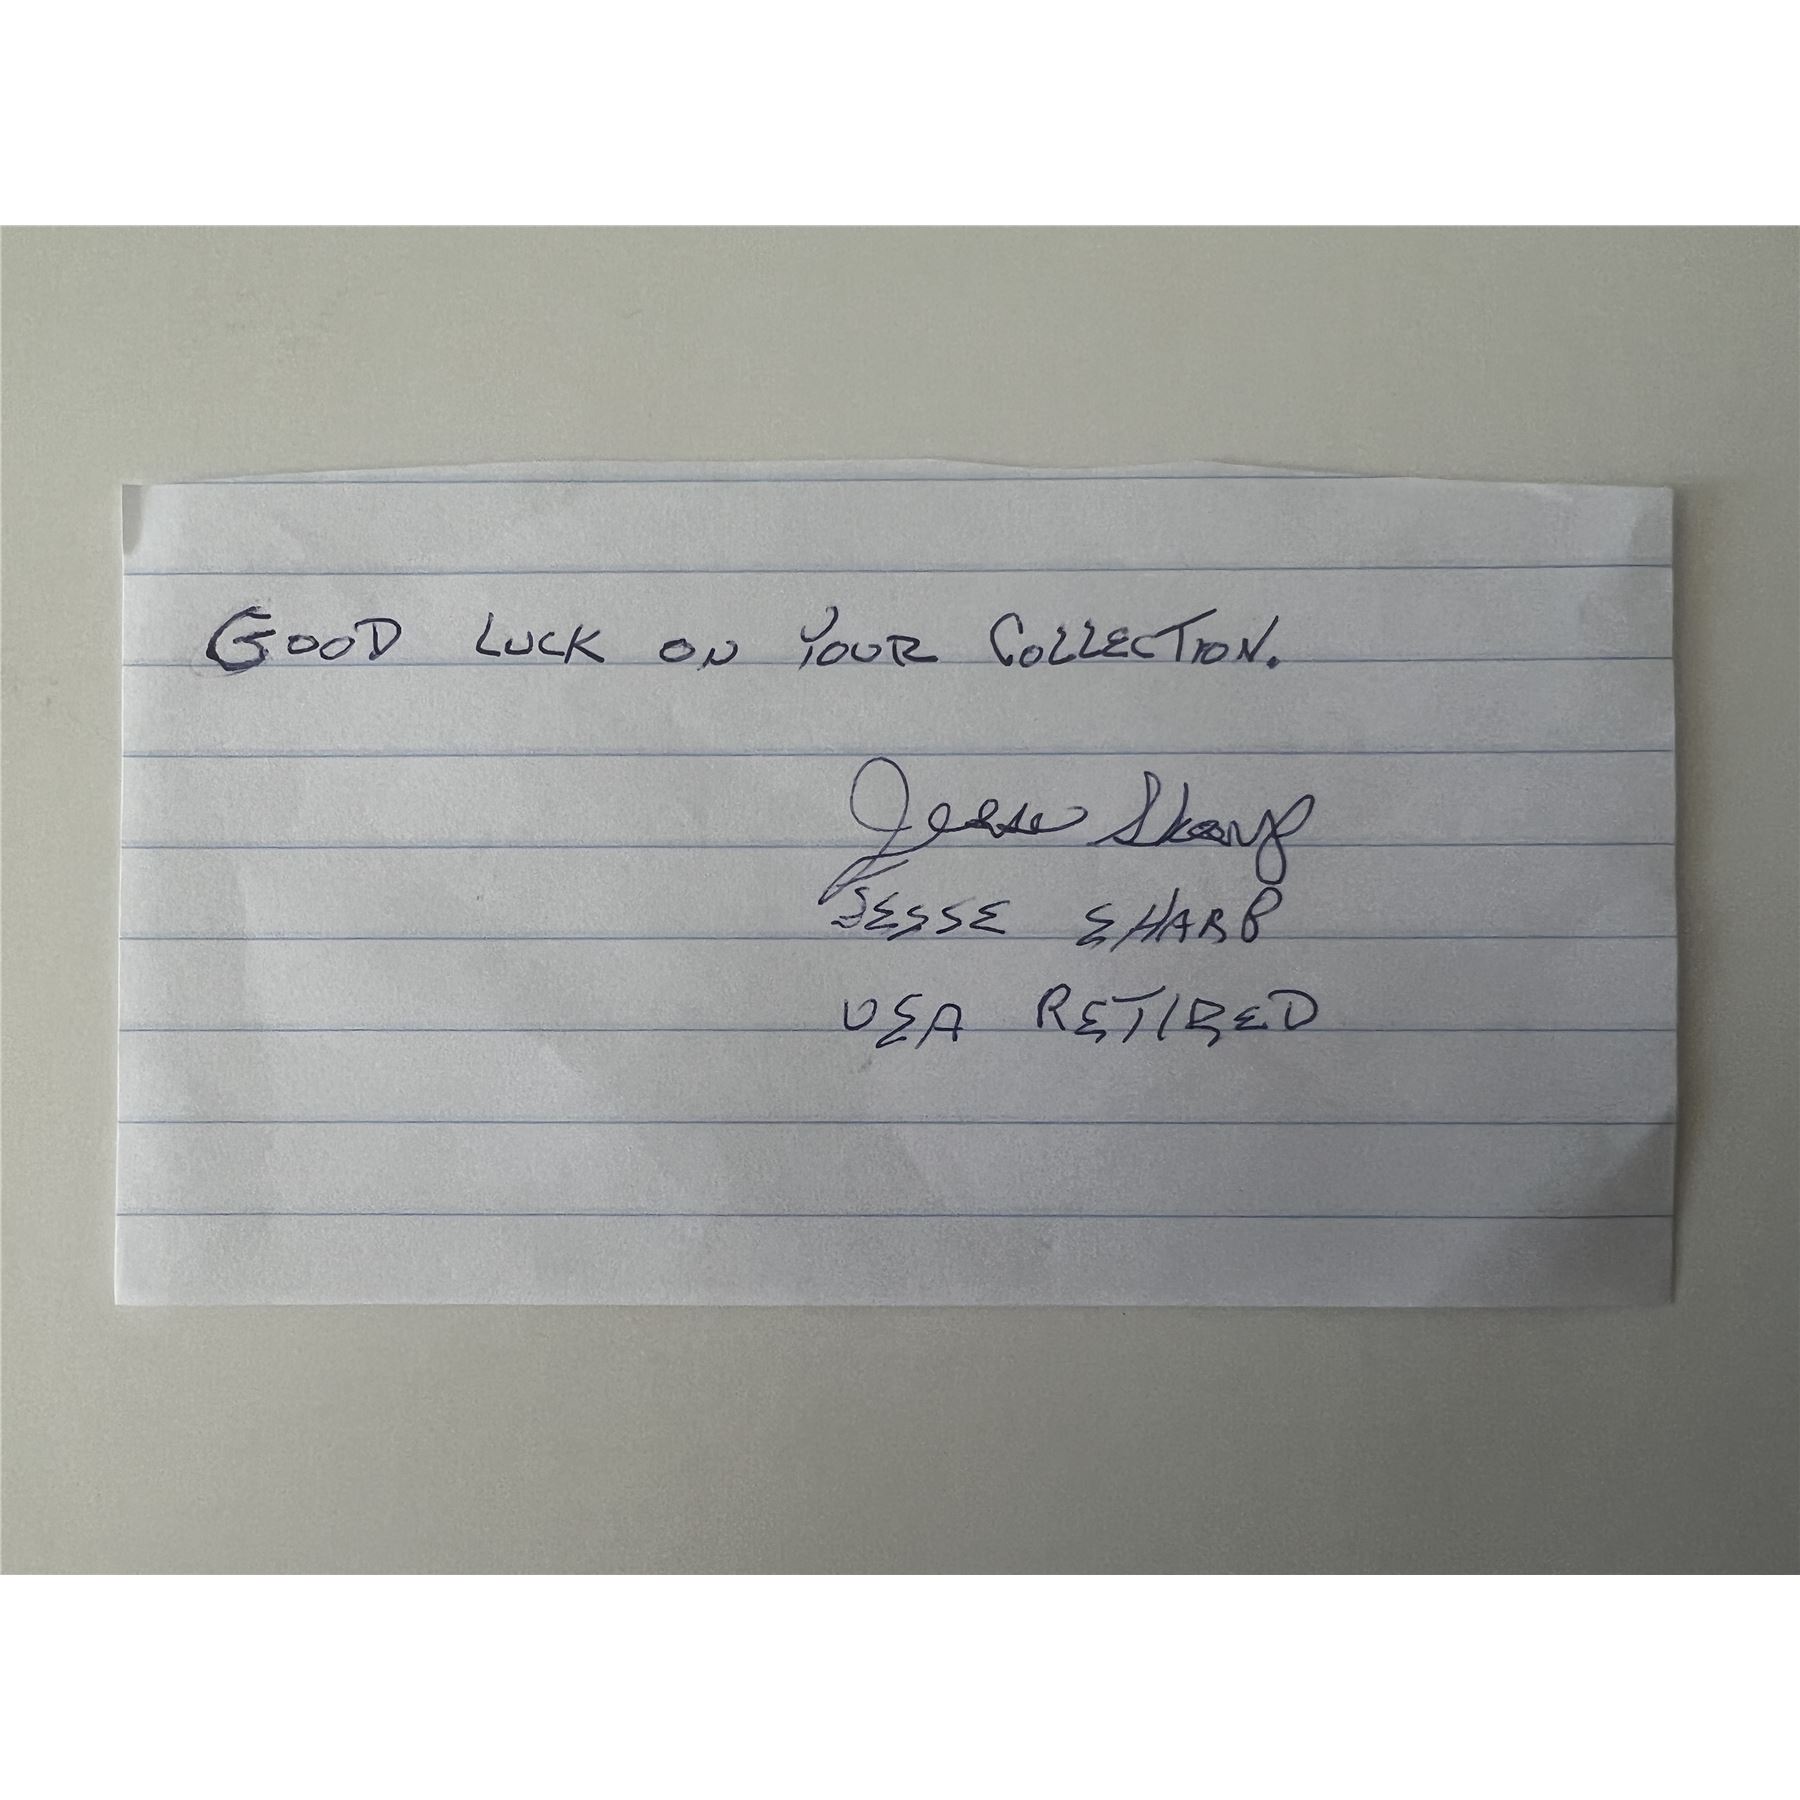 GOOD LUCK ON YOUR COLLECTION.
Jesse Sharp
JESSE SHARP
USA RETIRED